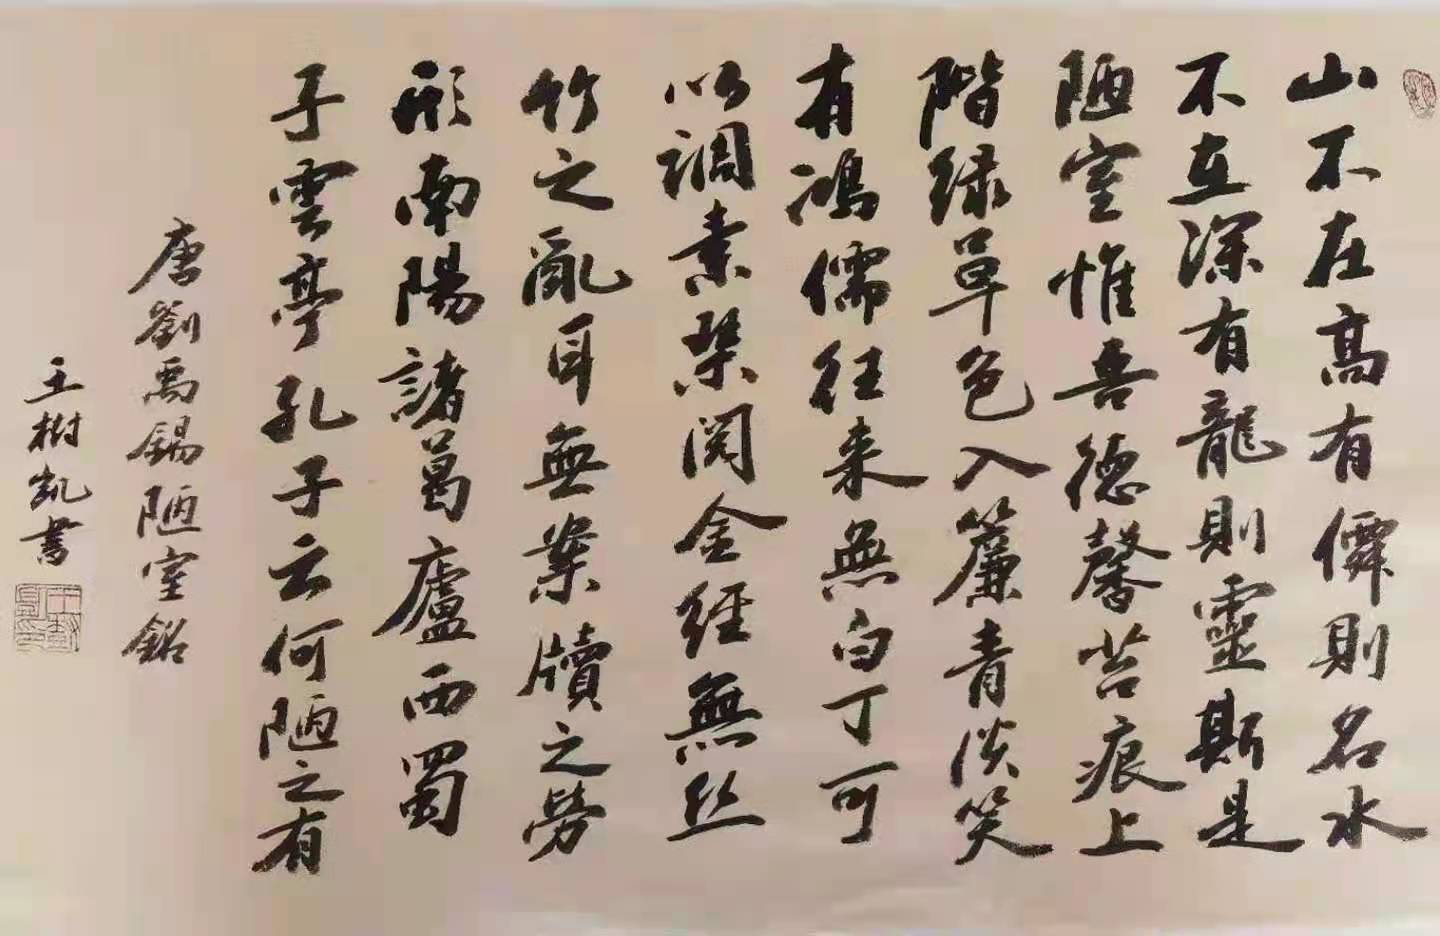 山不在高有僊則名水
不在深有龍則靈斯是
陋室惟吾德馨苔痕上
階绿草色入簾青淡笑
有鴻儒往来無白丁可
以調素琴阅金經無丝
竹之亂耳無案牘之勞
形南陽諸葛廬西蜀
子雲亭孔子云何陋之有
唐劉禹錫陋室銘
王樹凱書